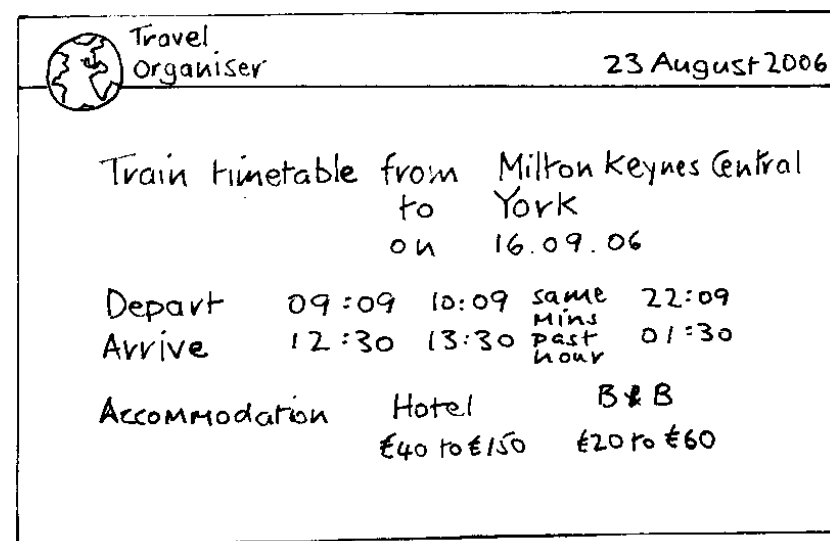 Travel
Organiser
23 August 2006
Train timetable from Milton Keynes Central
to York
on 16.09.06
Depart 09:09 10:09 same mins past hour 22:09
Arrive 12:30 13:30 01:30
Accommodation Hotel B & B
€40 to €150 €20 to €60